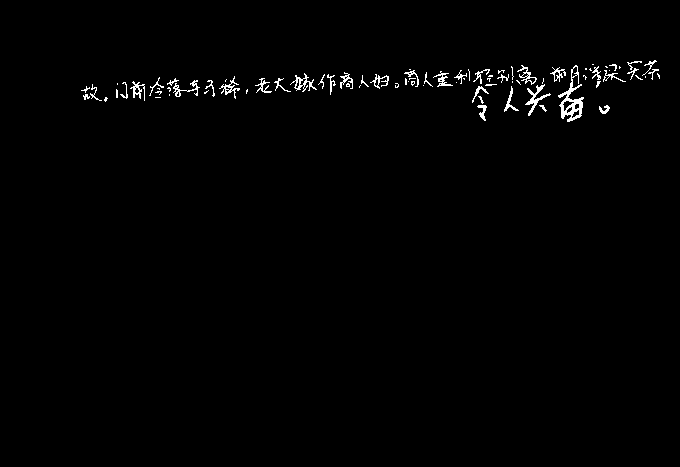 故。门前冷落车马稀，老大嫁作商人妇。商人重利轻别离，前月浮梁买茶
令人兴奋。